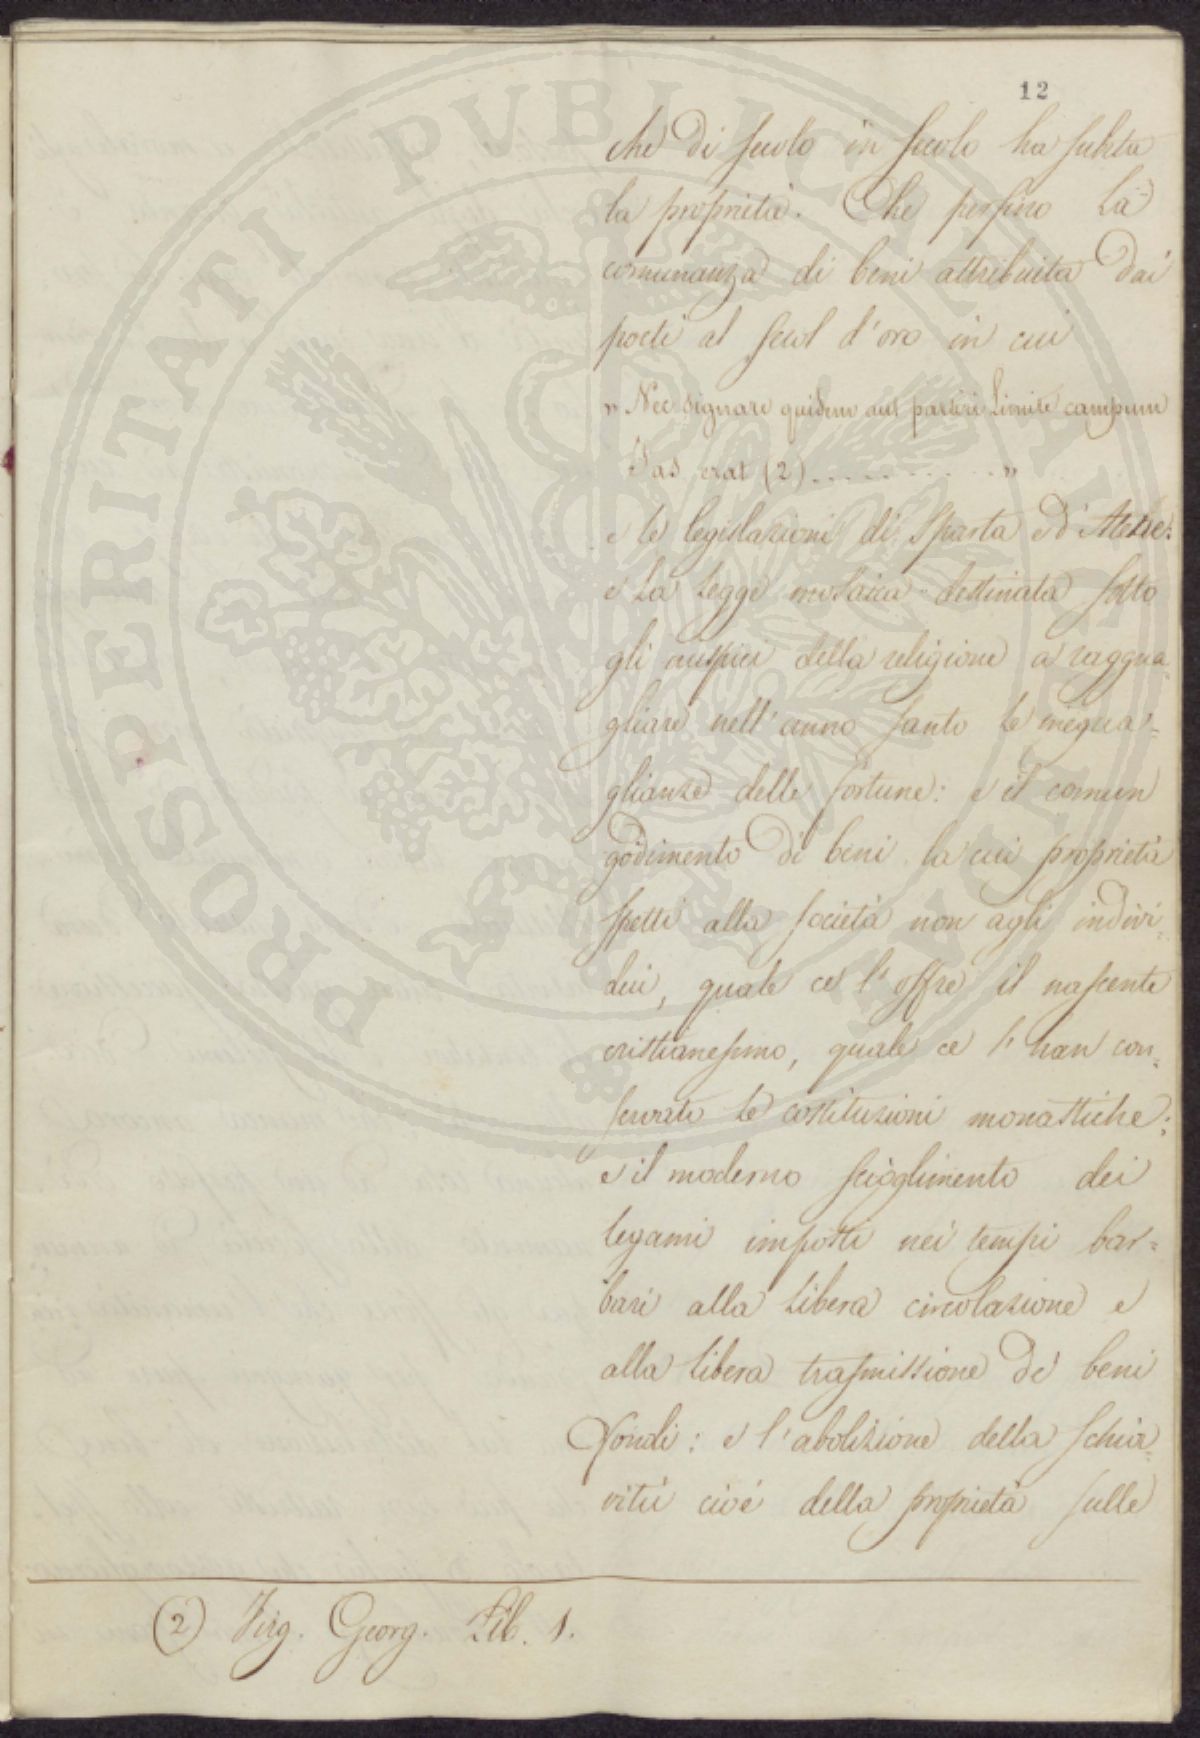 12
che di secolo in secolo ha subita
la proprietà. Che persino la
comunanza di beni attribuita dai
poeti al secol d'oro in cui
" Nec signare quidem aut partiri limite campum
Fas erat (2) .......... "
e le legislazioni di Sparta ed' Atene:
e la legge mosaica destinata sotto
gli auspici della religione a raggua=
gliare nell'anno santo le inegua=
glianze delle fortune: e il comun
godimento di beni la cui proprietà
spetti alla società non agli indivi=
dui, quale ce l'offre il nascente
cristianesimo, quale ce l'han con=
servato le costituzioni monastiche:
e il moderno scioglimento dei
legami imposti nei tempi bar=
bari alla libera circolazione e
alla libera trasmissione de' beni
fondi: e l'abolizione della schia=
vitù cioè della proprietà sulle
(2) Virg. Georg. Lib. 1.
PROSPERITATI PUBLICAE AUGENDAE